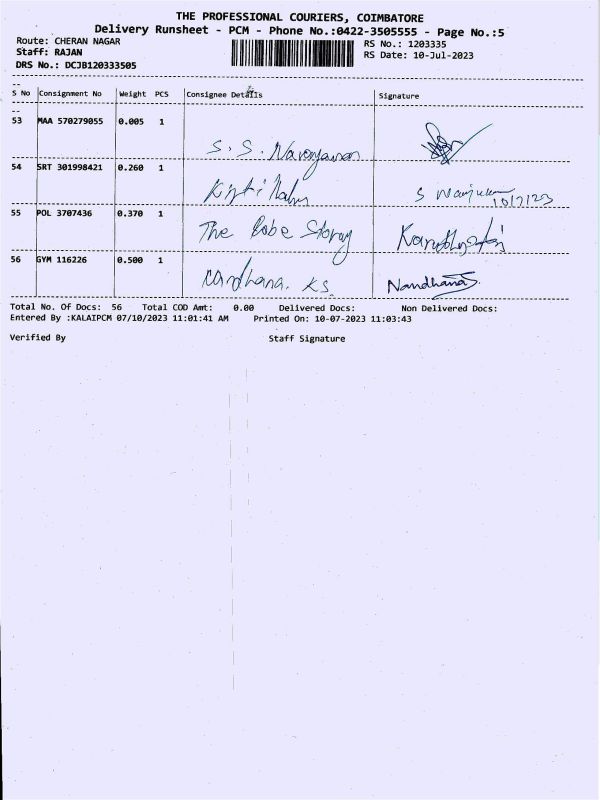 THE PROFESSIONAL COURIERS, COIMBATORE
Delivery Runsheet - PCM - Phone No.:0422-3505555 - Page No.:5
Route: CHERAN NAGAR RS No.: 1203335
Staff: RAJAN RS Date: 10-Jul-2023
DRS No.: DCJB120333505
S No Consignment No Weight PCS Consignee Details Signature
53 MAA 570279055 0.005 1
S. S. Narayanan
54 SRT 301998421 0.260 1
10/7/23
55 POL 3707436 0.370 1
The Robe Story
56 GYM 116226 0.500 1
Nandhana. KS. Nandhana
Total No. Of Docs: 56 Total COD Amt: 0.00 Delivered Docs: Non Delivered Docs:
Entered By :KALAIPCM 07/10/2023 11:01:41 AM Printed On: 10-07-2023 11:03:43
Verified By Staff Signature